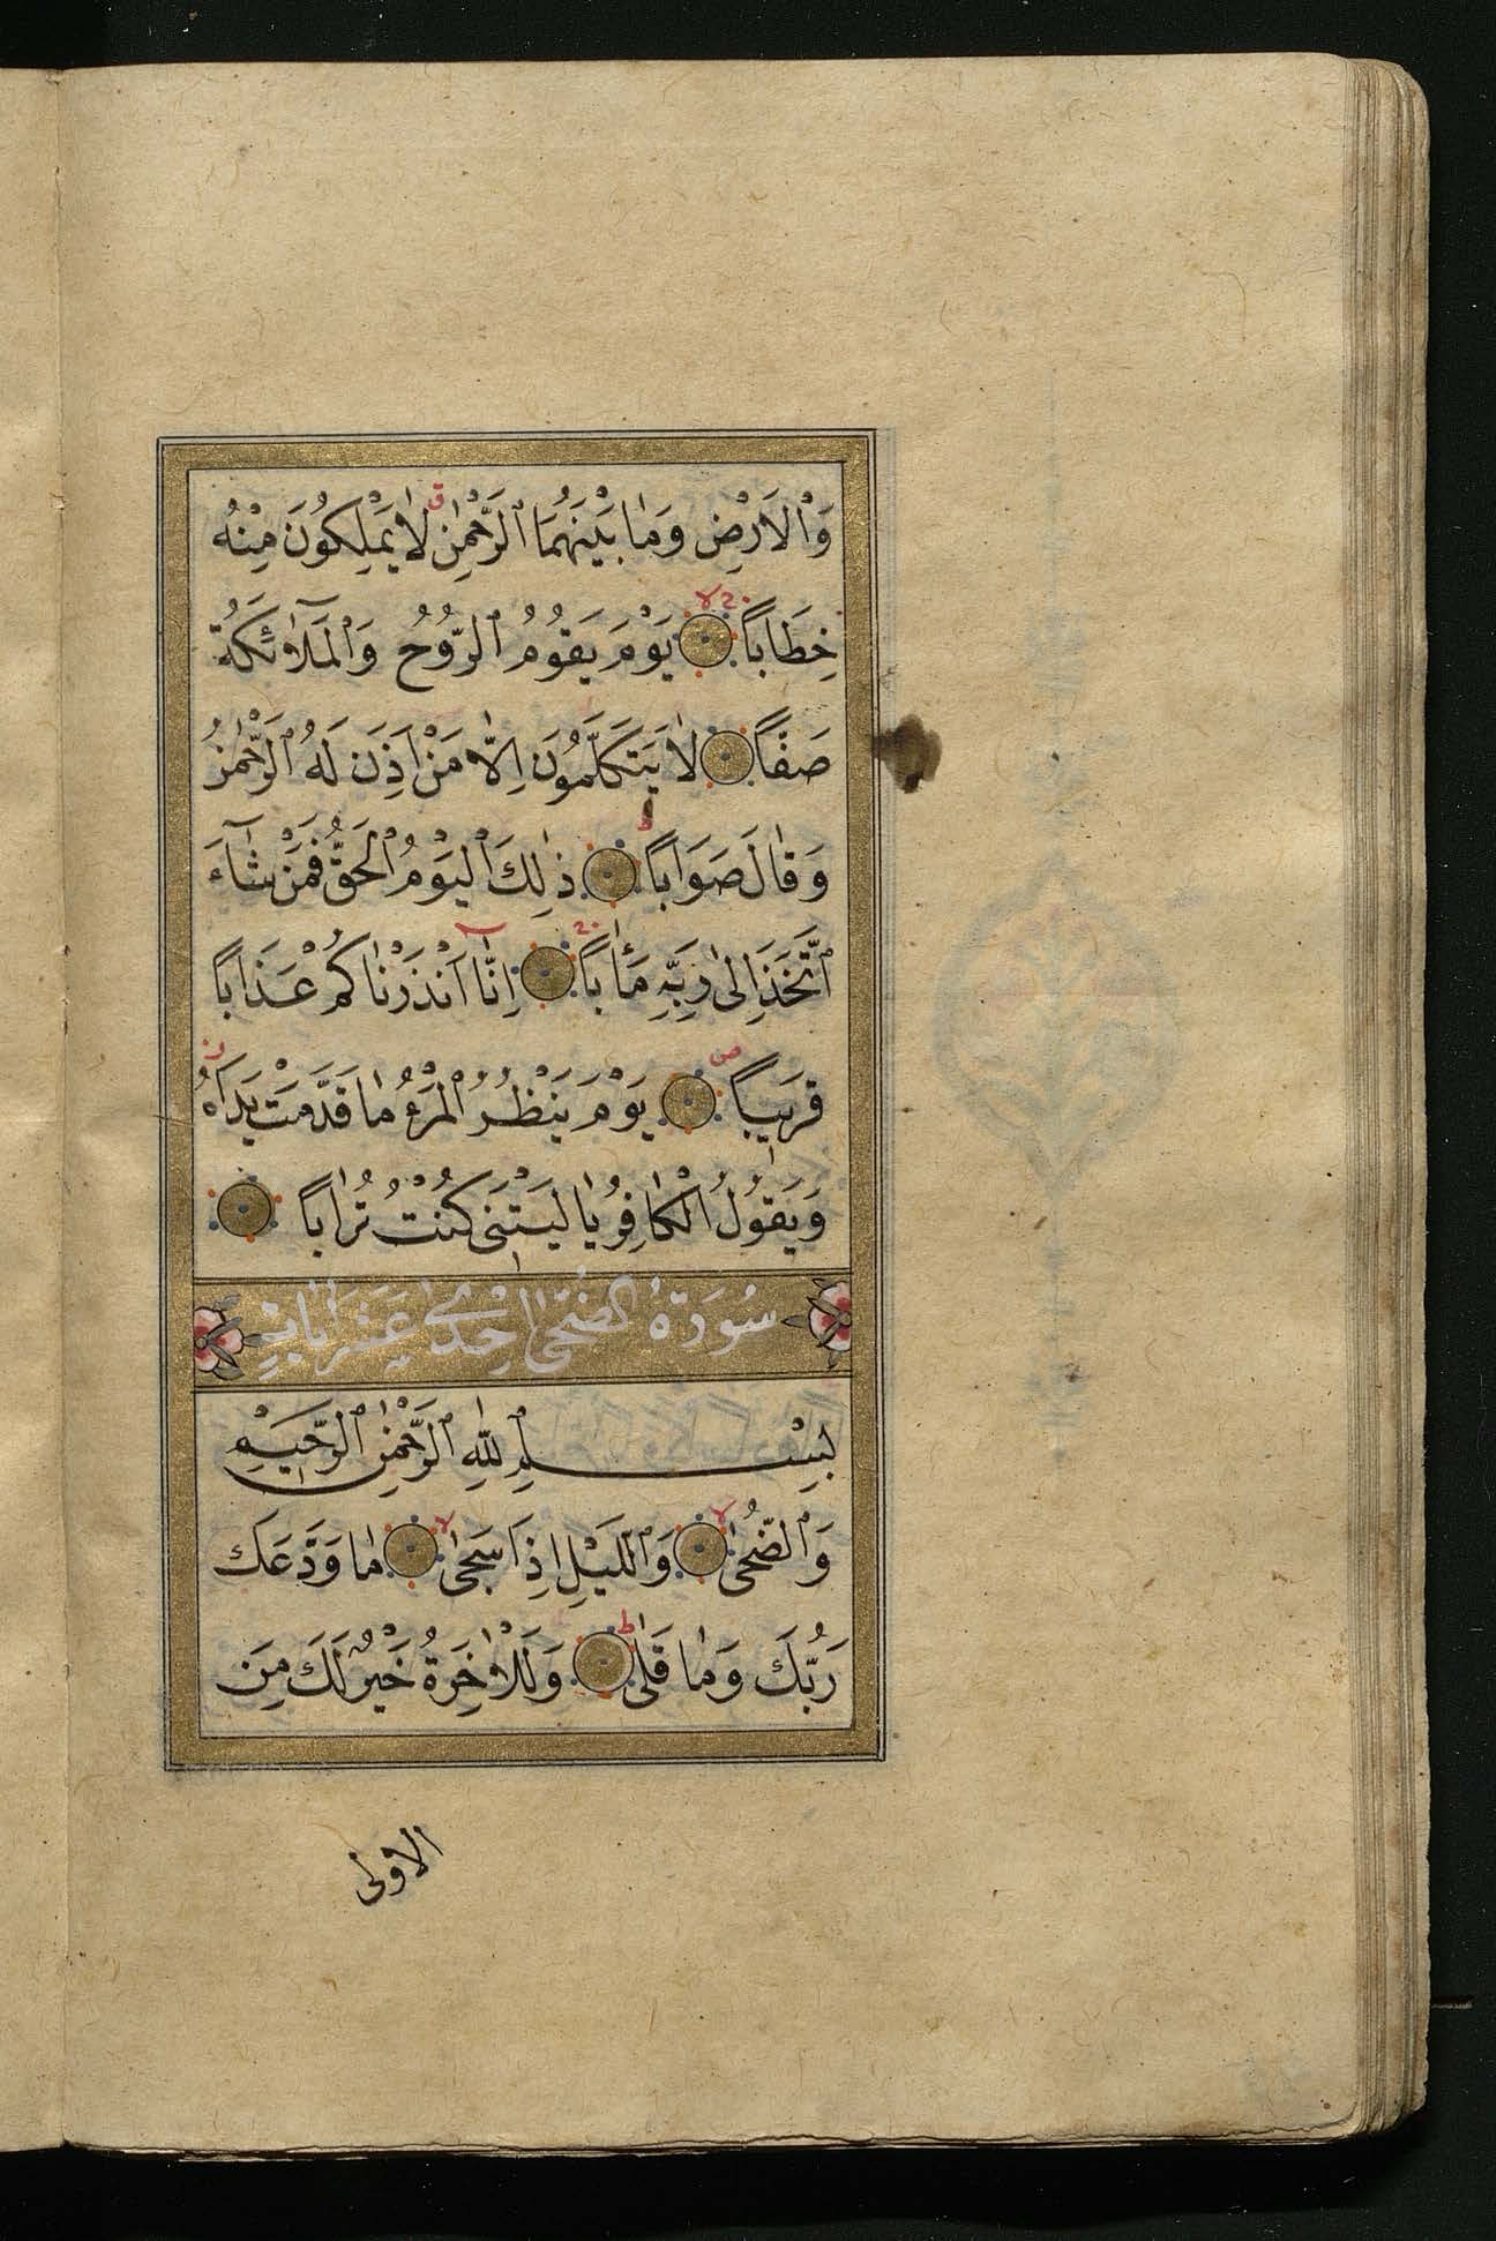 وَالْاَرْضِ وَمَا بَيْنَهُمَا الرَّحْمٰنِ لَا يَمْلِكُونَ مِنْهُ
خِطَابًا يَوْمَ يَقُومُ الرُّوحُ وَالْمَلٰٓئِكَةُ
صَفًّا لَا يَتَكَلَّمُونَ اِلَّا مَنْ اَذِنَ لَهُ الرَّحْمٰنُ
وَقَالَ صَوَابًا ذٰلِكَ الْيَوْمُ الْحَقُّ فَمَنْ شَآءَ
اتَّخَذَ اِلٰى رَبِّهِ مَاٰبًا اِنَّٓا اَنْذَرْنَاكُمْ عَذَابًا
قَرِيبًا يَوْمَ يَنْظُرُ الْمَرْءُ مَا قَدَّمَتْ يَدَاهُ
وَيَقُولُ الْكَافِرُ يَا لَيْتَنِى كُنْتُ تُرَابًا
سُورَةُ الضُّحٰى اِحْدٰى عَشَرَ اٰيَاتٍ
بِسْمِ اللّٰهِ الرَّحْمٰنِ الرَّحِيمِ
وَالضُّحٰى وَالَّيْلِ اِذَا سَجٰى مَا وَدَّعَكَ
رَبُّكَ وَمَا قَلٰى وَلَلْاٰخِرَةُ خَيْرٌ لَكَ مِنَ
الاولى